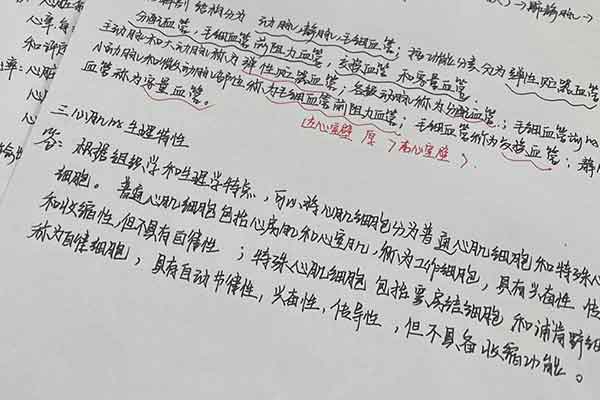 解剖结构分为 动脉,静脉,毛细血管;按功能分类分为弹性贮器血管
分配血管,毛细血管前阻力血管,交换血管 和容量血管
主动脉和大动脉称为弹性贮器血管;各级动脉称为分配血管;
小动脉和微动脉 称为毛细血管前阻力血管;毛细血管称为交换血管;静脉
血管称为容量血管。
左心室壁 厚 > 右心室壁
三.心肌的生理特性
答:根据组织学和生理学特点,可以将心肌细胞分为普通心肌细胞和特殊心
细胞。普通心肌细胞包括心房肌和心室肌,称为工作细胞,具有兴奋性 传
和收缩性,但不具有自律性 ;特殊心肌细胞 包括窦房结细胞 和浦肯野细
称为自律细胞,具有自动节律性,兴奋性,传导性,但不具备收缩功能。
心率
和
率:心脏